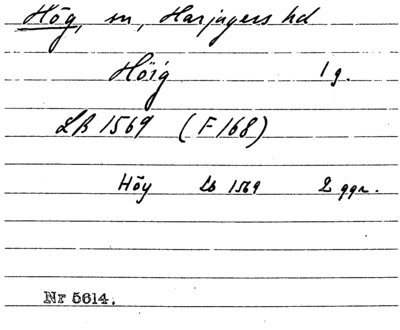 Hög, sn, Harjagers hd
Höig 1 g.
LB 1569 (F 168)
Höy Lb 1569 2 ggr.
Nr 5614.